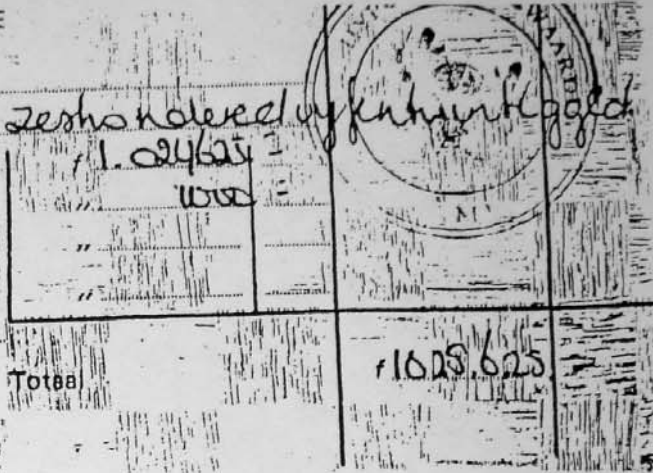 zeshondereed vyfentwintig gld
f 1.024625 =
" 4000 =
"
"
Totaal f 1028.625